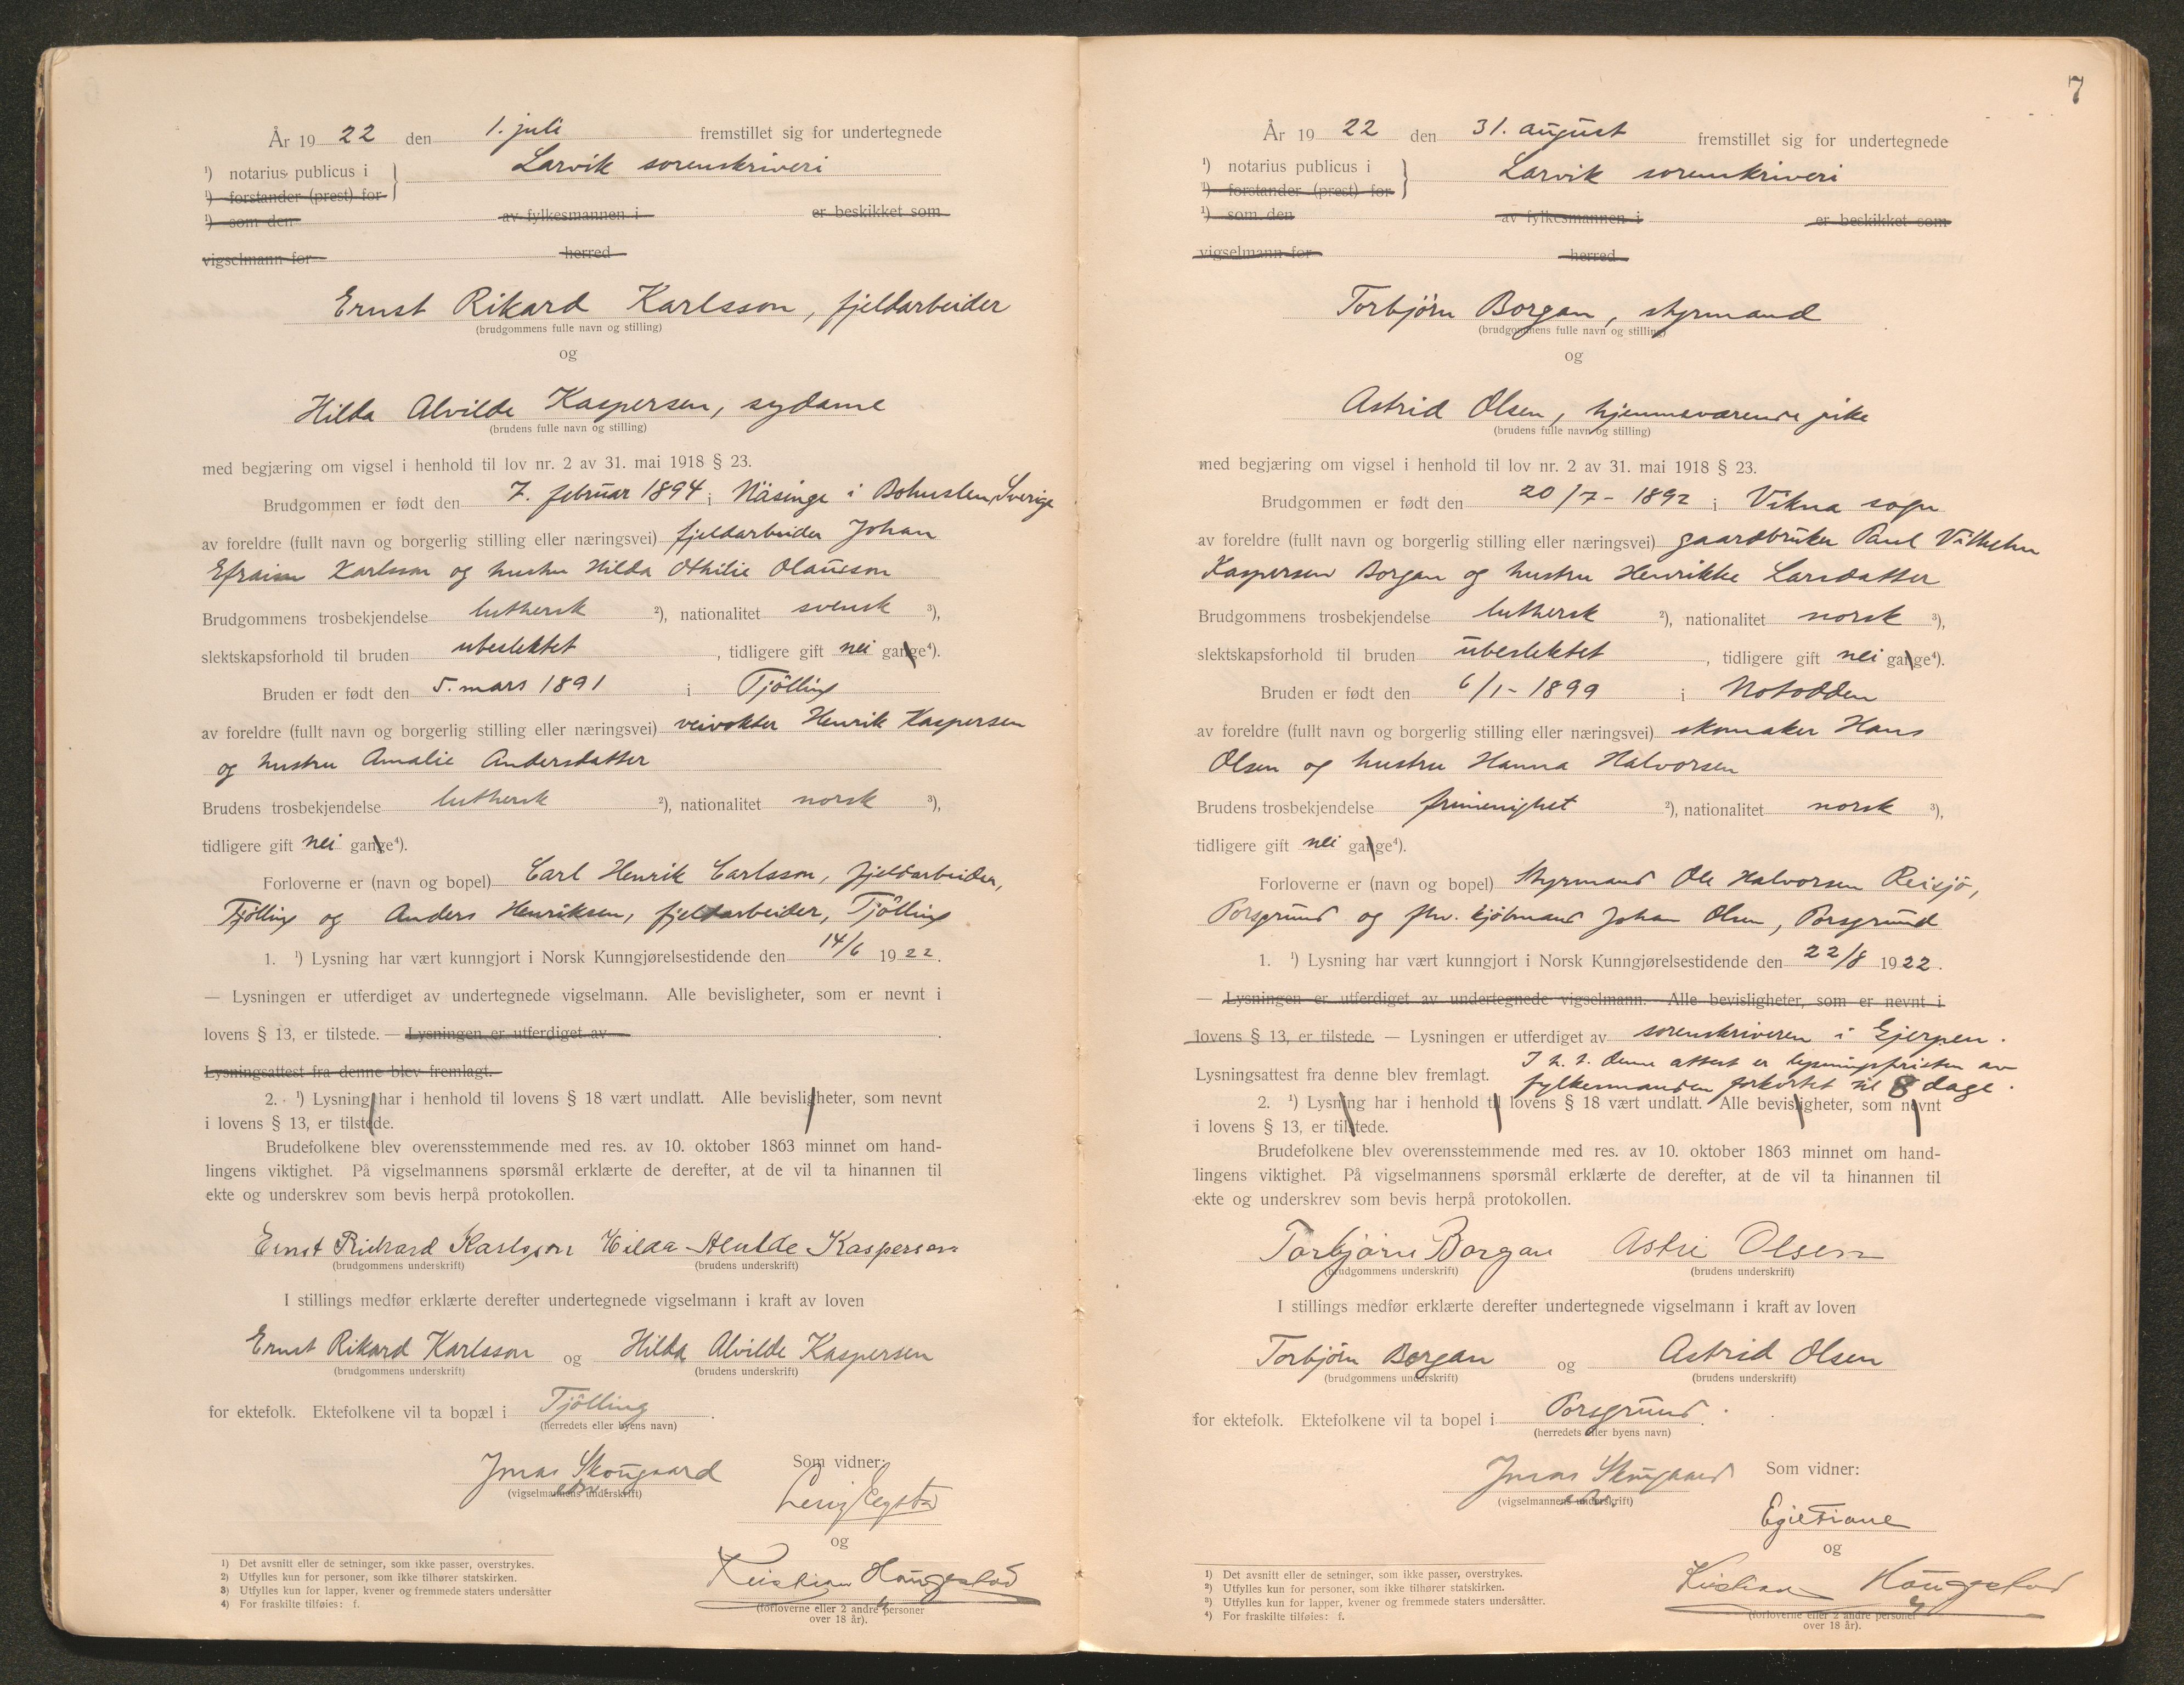 År 19 22 den 1. juli fremstillet sig for undertegnede
¹) notarius publicus i } Larvik sorenskriveri
¹) forstander (prest) for
¹) som den av fylkesmannen i er beskikket som
vigselmann for herred
Ernst Rikard Karlsson, fjeldarbeider
(brudgommens fulle navn og stilling)
og
Hilda Alvilde Kaspersen, sydame
(brudens fulle navn og stilling)
med begjæring om vigsel i henhold til lov nr. 2 av 31. mai 1918 § 23.
Brudgommen er født den 7. februar 1894 i Näsinge i Bohuslen, Sverige
av foreldre (fullt navn og borgerlig stilling eller næringsvei) fjeldarbeider Johan
Efraim Karlsson og hustru Hilda Othilie Olausson
Brudgommens trosbekjendelse luthersk ²), nationalitet svensk ³),
slektskapsforhold til bruden ubeslektet, tidligere gift nei gange⁴).
Bruden er født den 5. mars 1891 i Tjölling
av foreldre (fullt navn og borgerlig stilling eller næringsvei) veivokter Henrik Kaspersen
og hustru Amalie Andersdatter
Brudens trosbekjendelse luthersk ²), nationalitet norsk ³),
tidligere gift nei gange⁴).
Forloverne er (navn og bopel) Carl Henrik Carlsson, fjeldarbeider,
Tjölling og Anders Henriksen, fjeldarbeider, Tjölling
1. ¹) Lysning har vært kunngjort i Norsk Kunngjørelsestidende den 14/6 1922.
— Lysningen er utferdiget av undertegnede vigselmann. Alle bevisligheter, som er nevnt i
lovens § 13, er tilstede. — Lysningen er utferdiget av .
Lysningsattest fra denne blev fremlagt.
2. ¹) Lysning har i henhold til lovens § 18 vært undlatt. Alle bevisligheter, som nevnt
i lovens § 13, er tilstede.
Brudefolkene blev overensstemmende med res. av 10. oktober 1863 minnet om hand-
lingens viktighet. På vigselmannens spørsmål erklærte de derefter, at de vil ta hinannen til
ekte og underskrev som bevis herpå protokollen.
Ernst Richard Karlsson Hilda Alvilde Kaspersen
(brudgommens underskrift) (brudens underskrift)
I stillings medfør erklærte derefter undertegnede vigselmann i kraft av loven
Ernst Rikard Karlsson og Hilda Alvilde Kaspersen
(brudgommens underskrift) (brudens underskrift)
for ektefolk. Ektefolkene vil ta bopæl i Tjölling.
(herredets eller byens navn)
Jonas Skougaard Som vidner:
(vigselmannens underskrift)
og
Kristian Haugestad
(forloverne eller 2 andre personer
over 18 år).
1) Det avsnitt eller de setninger, som ikke passer, overstrykes.
2) Utfylles kun for personer, som ikke tilhører statskirken.
3) Utfylles kun for lapper, kvener og fremmede staters undersåtter
4) For fraskilte tilføies: f.
7
År 19 22 den 31. august fremstillet sig for undertegnede
¹) notarius publicus i } Larvik sorenskriveri
¹) forstander (prest) for
¹) som den av fylkesmannen i er beskikket som
vigselmann for herred
Torbjörn Borgan, styrmand
(brudgommens fulle navn og stilling)
og
Astrid Olsen, hjemmeværende pike
(brudens fulle navn og stilling)
med begjæring om vigsel i henhold til lov nr. 2 av 31. mai 1918 § 23.
Brudgommen er født den 20/7 - 1892 i Vikna sogn
av foreldre (fullt navn og borgerlig stilling eller næringsvei) gaardbruker Paul Vilhelm
Kaspersen Borgan og hustru Henrikke Larsdatter
Brudgommens trosbekjendelse luthersk ²), nationalitet norsk ³),
slektskapsforhold til bruden ubeslektet, tidligere gift nei gange⁴).
Bruden er født den 6/1 - 1899 i Notodden
av foreldre (fullt navn og borgerlig stilling eller næringsvei) skomaker Hans
Olsen og hustru Hanna Halvorsen
Brudens trosbekjendelse frimenighet ²), nationalitet norsk ³),
tidligere gift nei gange⁴).
Forloverne er (navn og bopel) Styrmand Ole Halvorsen Reisjö,
Porsgrund og fhv. kjöbmand Johan Olsen, Porsgrund
1. ¹) Lysning har vært kunngjort i Norsk Kunngjørelsestidende den 22/8 1922.
— Lysningen er utferdiget av undertegnede vigselmann. Alle bevisligheter, som er nevnt i
lovens § 13, er tilstede. — Lysningen er utferdiget av sorenskriveren i Gjerpen.
Lysningsattest fra denne blev fremlagt. I h. t. denne attest er lysningsfristen av
fylkesmanden forkortet til 8 dage.
2. ¹) Lysning har i henhold til lovens § 18 vært undlatt. Alle bevisligheter, som nevnt
i lovens § 13, er tilstede.
Brudefolkene blev overensstemmende med res. av 10. oktober 1863 minnet om hand-
lingens viktighet. På vigselmannens spørsmål erklærte de derefter, at de vil ta hinannen til
ekte og underskrev som bevis herpå protokollen.
Torbjørn Borgan Astri Olsen
(brudgommens underskrift) (brudens underskrift)
I stillings medfør erklærte derefter undertegnede vigselmann i kraft av loven
Torbjörn Borgan og Astrid Olsen
(brudgommens underskrift) (brudens underskrift)
for ektefolk. Ektefolkene vil ta bopel i Porsgrund.
(herredets eller byens navn)
Jonas Skougaard Som vidner:
(vigselmannens underskrift)
og
Kristian Haugestad
(forloverne eller 2 andre personer
over 18 år).
¹) Det avsnitt eller de setninger, som ikke passer, overstrykes.
²) Utfylles kun for personer, som ikke tilhører statskirken.
³) Utfylles kun for lapper, kvener og fremmede staters undersåtter.
⁴) For fraskilte tilføies: f.